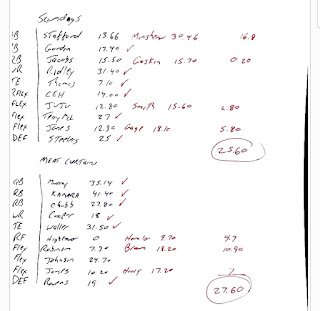 Sundogs
QB Stafford 13.66 Minshew 30.46 16.8
RB Gordon 17.40 ✓
RB Jacobs 15.50 Gaskin 15.70 0.20
WR Ridley 31.40 ✓
TE Thomas 7.10 ✓
RFlex CEH 14.00 ✓
FLEX JuJu 12.80 Smith 15.60 2.80
Flex 27 ✓
Flex Jones 12.30 Gage 18.10 5.80
DEF Steelers 25 ✓
25.60
MEAT CURTAIN
QB Murray 35.14 ✓
RB KAMARA 41.40 ✓
RB Chubb 27.80 ✓
WR Cooper 18 ✓
TE Waller 31.50 ✓
RF Hightower 0 9.70 9.7
Flex Robinson 7.30 Brown 18.20 10.90
Flex Johnson 24.70
Flex Jones 10.20 Henry 17.20 7
DEF Ravens 19 ✓
27.60